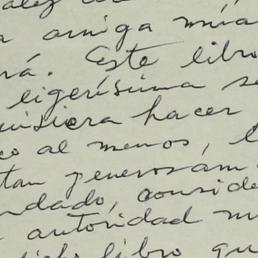 a amiga mía
rá. Este libro
ligerísima se
quisiera hacer
co al menos, l
tan generosam
ndado, conside
autoridad m
dicho libro qu